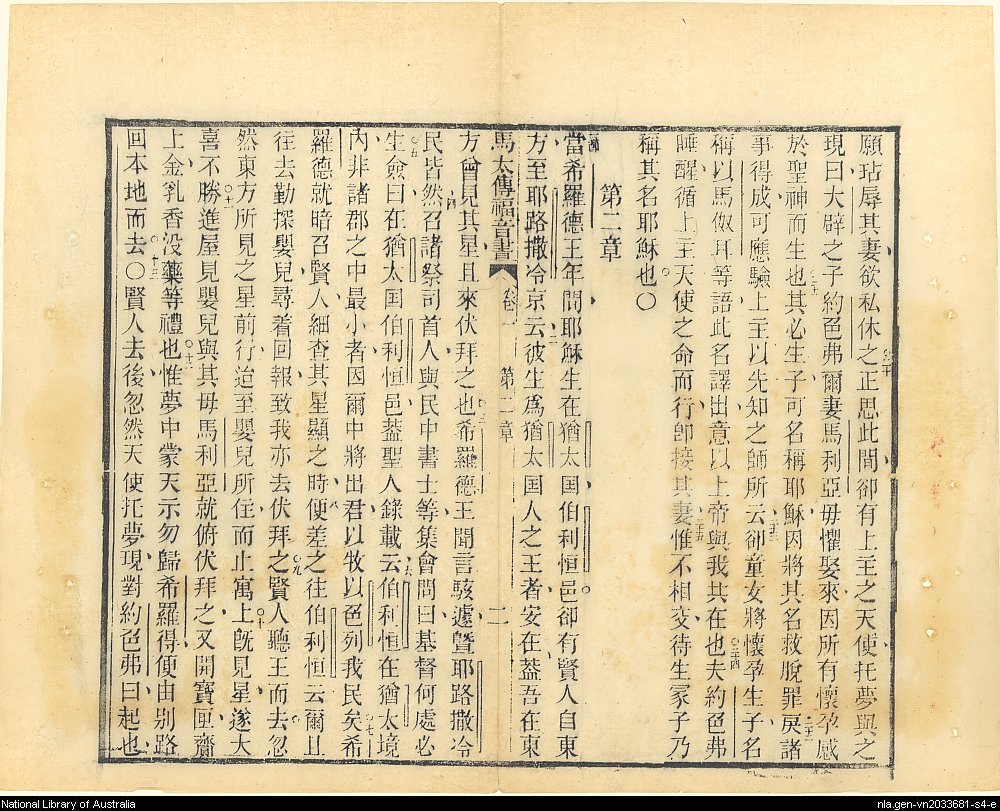 願玷辱其妻欲私休之正思此間卻有上主之天使托夢與之
現曰大辟之子約色弗爾妻馬利亞毋懼娶來因所有懷孕感
於聖神而生也其必生子可名稱耶穌因將其名救脫罪戾諸
事得成可應驗上主以先知之師所云卻童女將懷孕生子名
稱以馬俶耳等語此名譯出意以上帝與我共在也夫約色弗
睡醒循上主天使之命而行卽接其妻惟不相交待生冢子乃
稱其名耶穌也〇
第二章
當希羅德王年間耶穌生在猶太囯伯利恒邑卻有賢人自東
方至耶路撒冷京云彼生爲猶太囯人之王者安在葢吾在東
馬太傳福音書 卷一 第二章 二
方曾見其星且來伏拜之也希羅德王聞言駭遽曁耶路撒冷
民皆然召諸祭司首人與民中書士等集會問曰基督何處必
生僉曰在猶太囯伯利恒邑葢聖人錄載云伯利恒在猶太境
內非諸郡之中最小者因爾中將出君以牧以色列我民矣希
羅德就暗召賢人細查其星顯之時便差之往伯利恒云爾且
往去勤探嬰兒尋着回報致我亦去伏拜之賢人聽王而去忽
然東方所見之星前行迨至嬰兒所住而止寓上旣見星遂大
喜不勝進屋見嬰兒與其毋馬利亞就俯伏拜之又開寶匣齎
上金乳香没藥等禮也惟夢中蒙天示勿歸希羅得便由別路
回本地而去〇賢人去後忽然天使托夢現對約色弗曰起也
National Library of Australia
nla.gen-vn2033681-s4-e